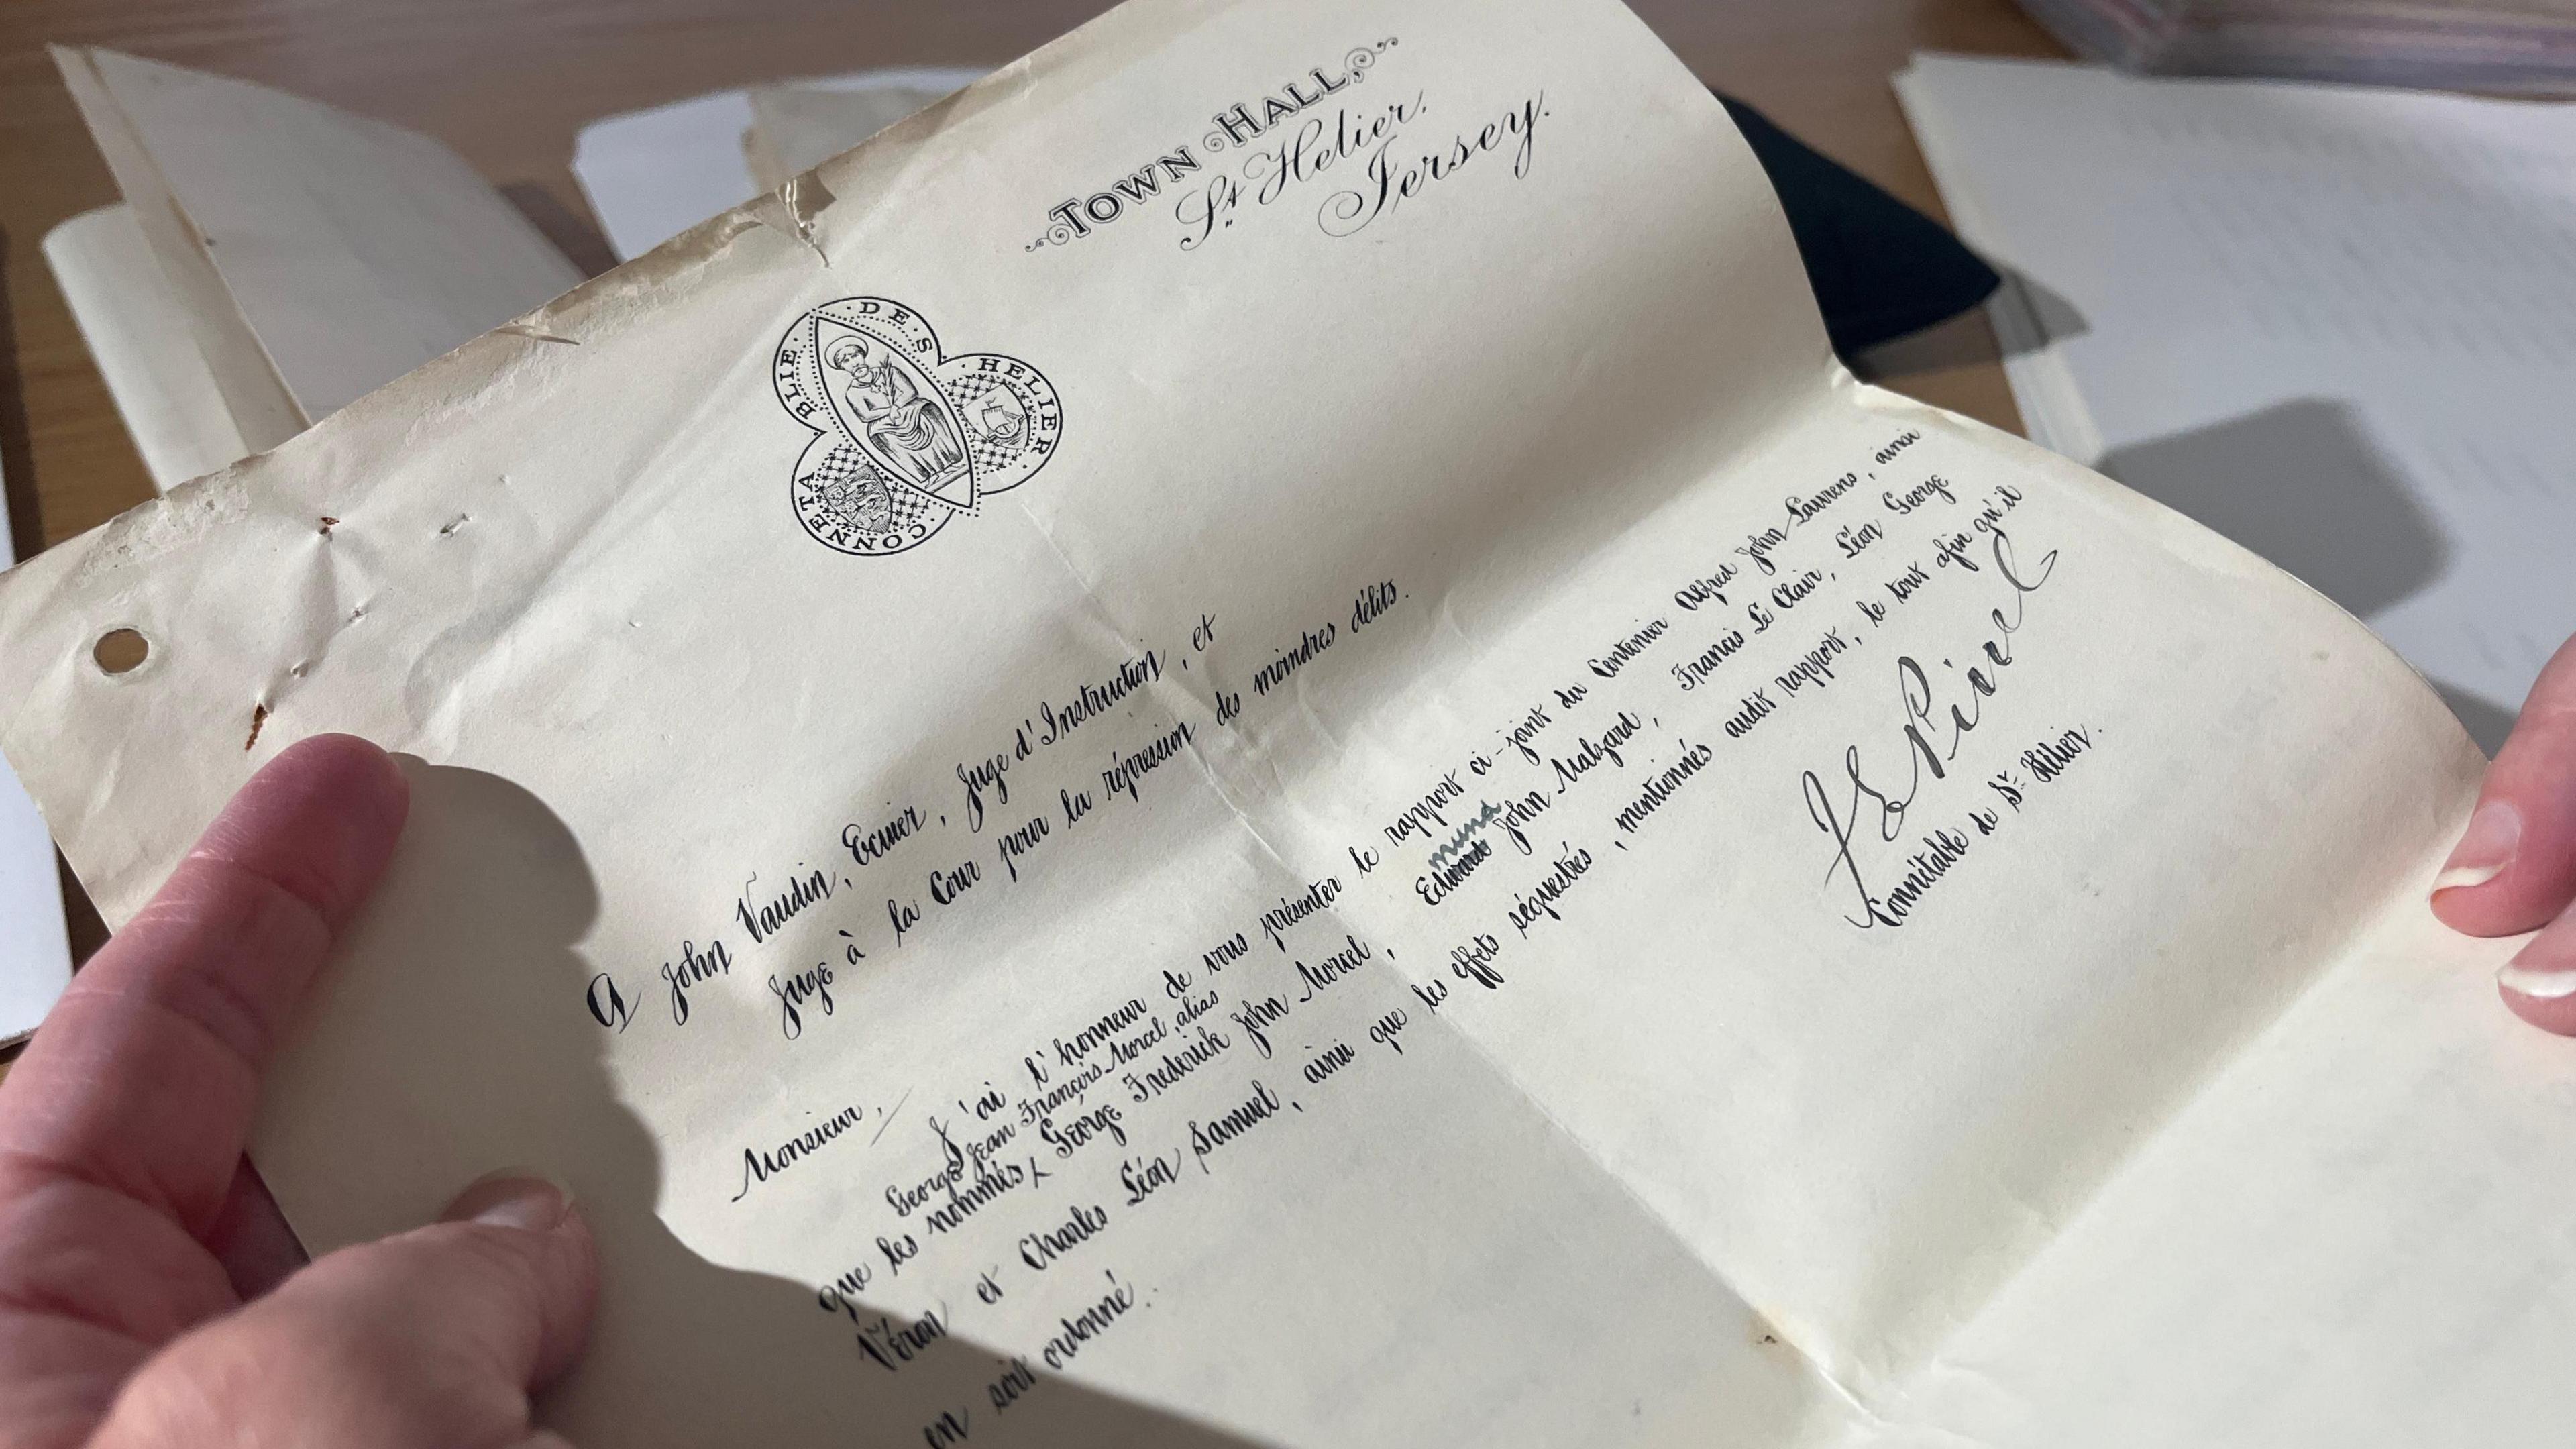 TOWN HALL,
St Helier,
Jersey.
CONNETABLIE · DE · S · HELIER ·
A John Vaudin, Ecuier, Juge d'Instruction, et
Juge à la Cour pour la répression des moindres délits.
Monsieur,
J'ai l'honneur de vous présenter le rapport ci-joint du Centenier Alfred John Laurens, ainsi
George Jean François Morcel, alias
que les nommés George Frederick John Morcel, Edward mund John Malzard, Francis Le Clair, Léon George
Véron et Charles Léon Samuel, ainsi que les effets séquestrés, mentionnés audit rapport, le tout afin qu'il
en soit ordonné.
Connétable de St. Hélier.